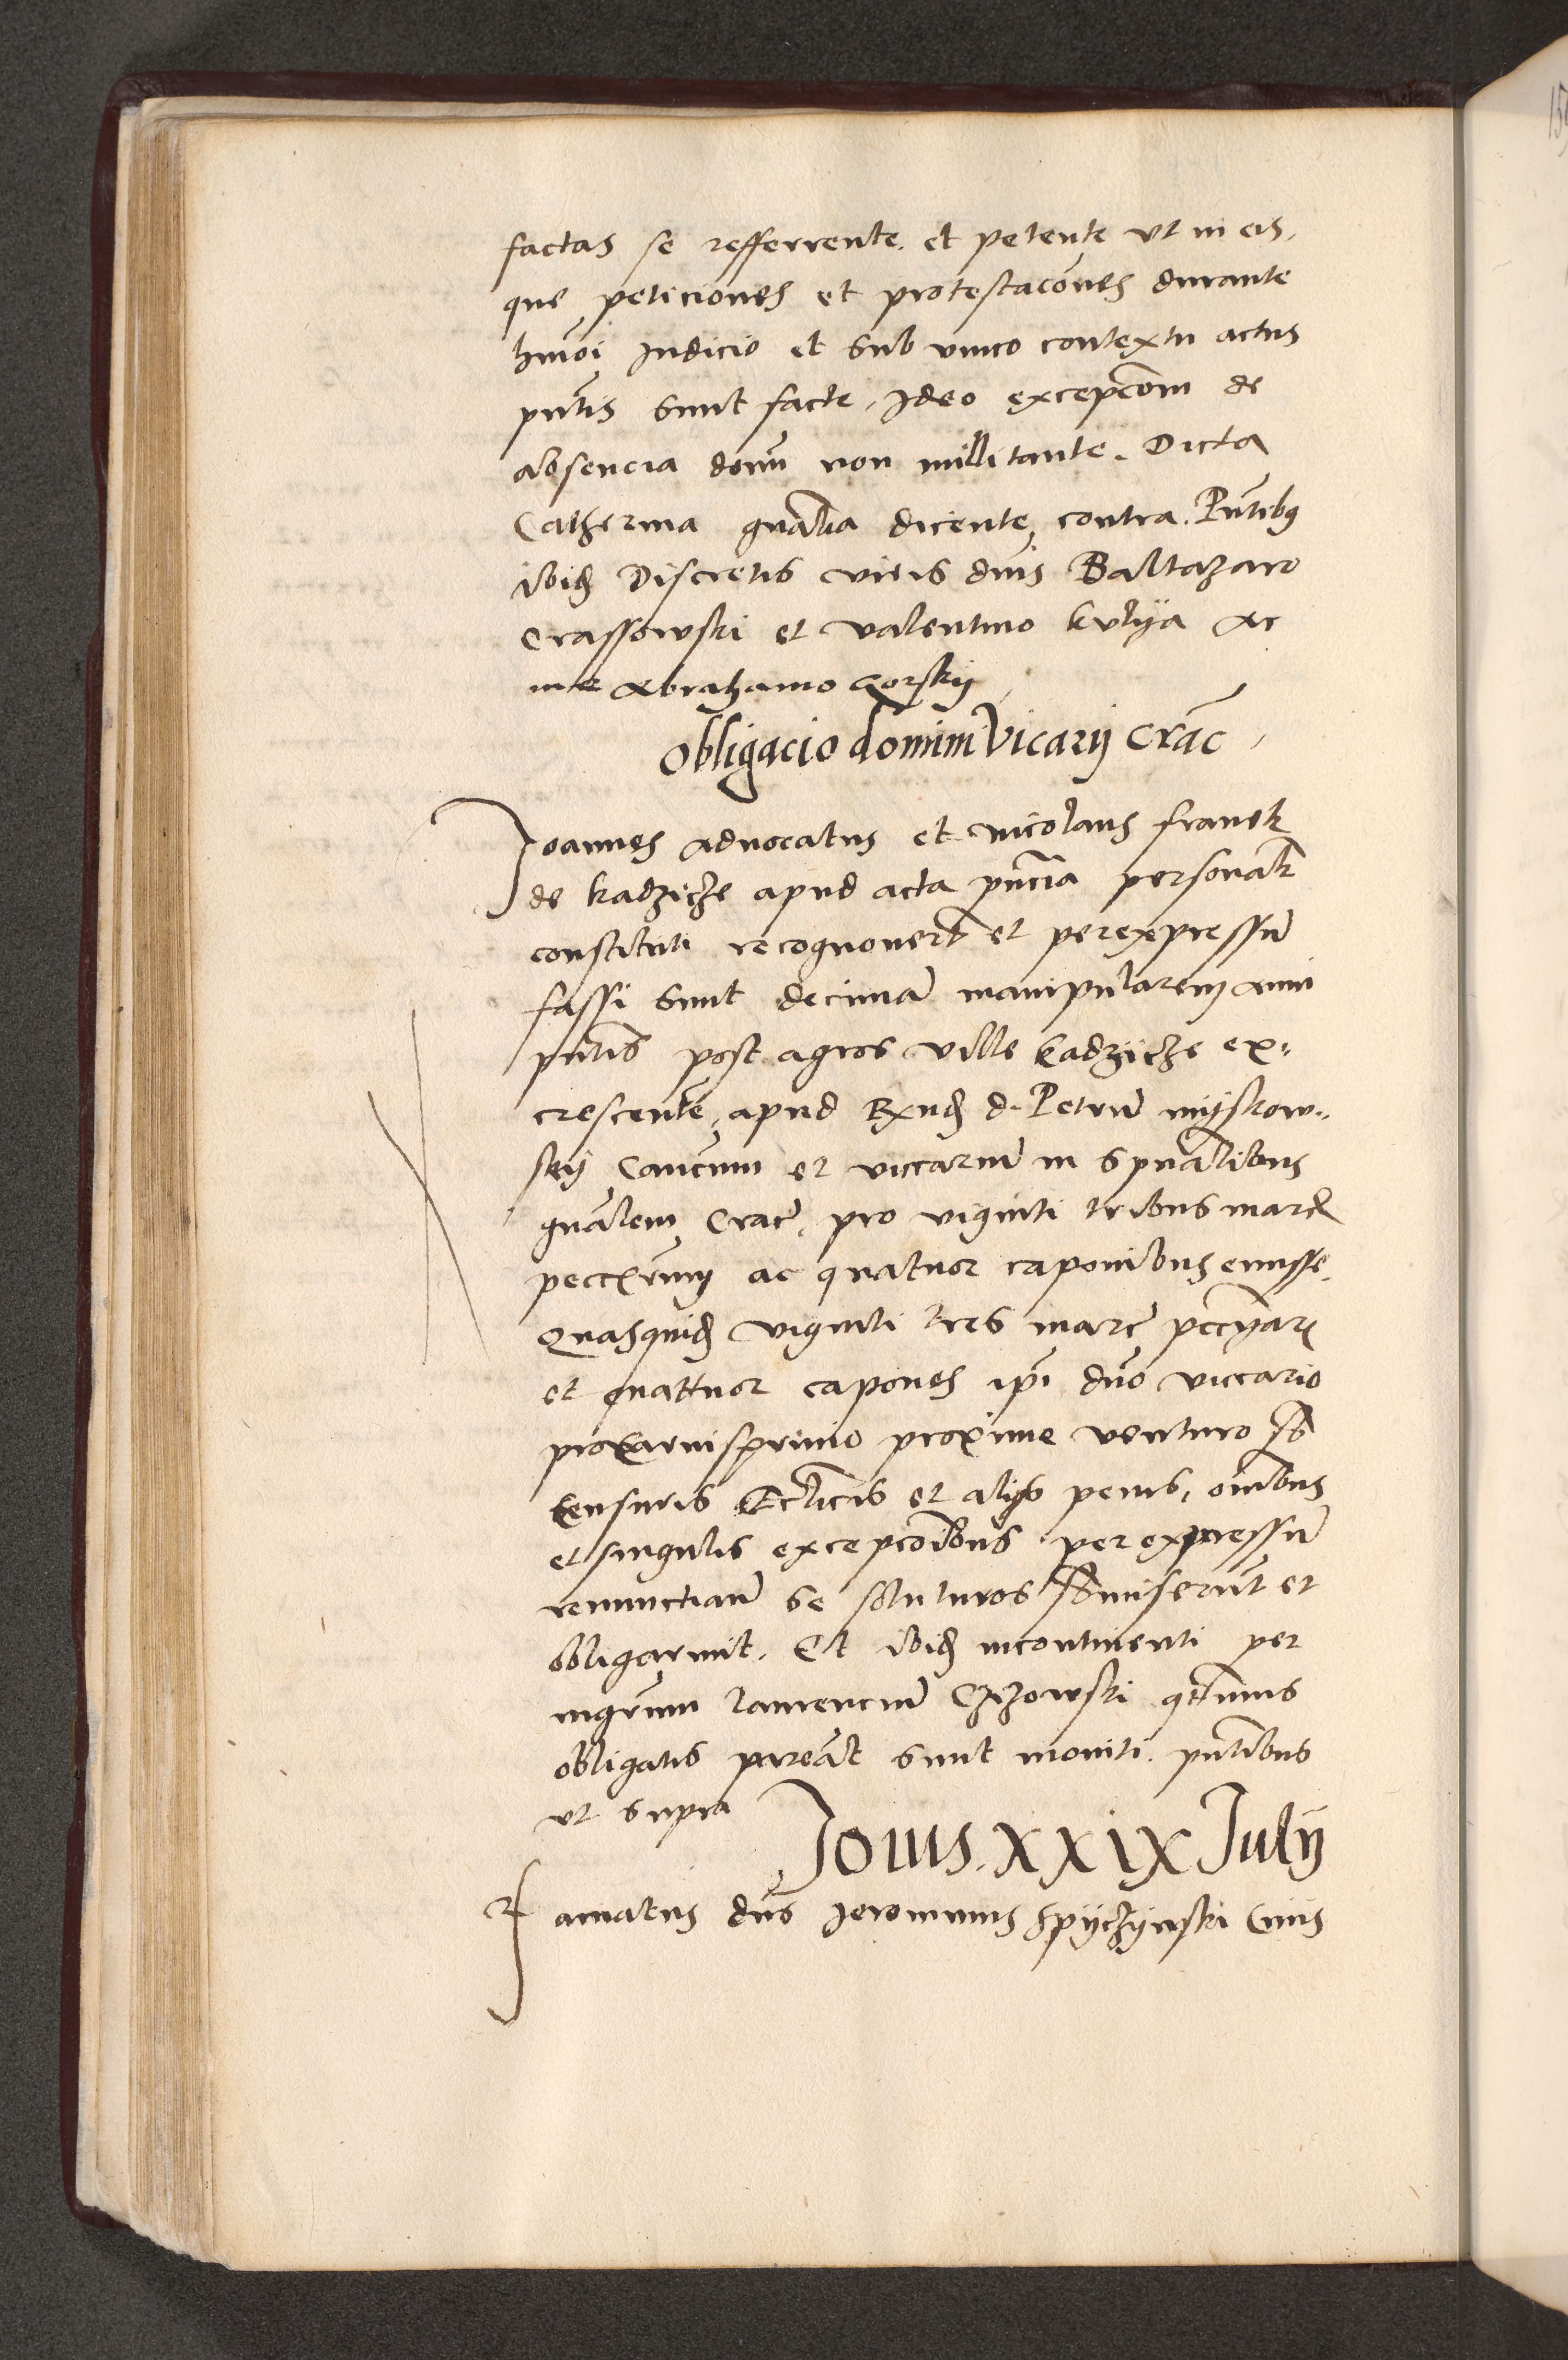 factas se refferrente. et petente ut in eis,
que peticiones et protestacōnes durante
hmōi Judicio et sub unico contextu actus
pn̄tis sunt facte, Ideo excepcōm de
absencia dom̄ non millitante. Dicta
Catherina gnālia dicente contra. Pn̄tibꝯ
ibiḋ Discretis viris dn̄is Baltazaro
Crassowski et Valentino kulya Ac
me Abrahamo Gorskij
Obligacio domini Vicarij Crac̄
Joannes Advocatus et Nicolaus franek
de kadzicze apud acta pn̄cia personalr̄
constituti recognoverūt et per expressum̄
fassi sunt decimam̄ manipularem Anni
pn̄tis post agros ville kadzicze ex-
crescentem̄, apud Rn̄d d. Petrum̄ mijskow-
skij Can̄cum et viccarium̄ in spūalibus
gnālem Crac̄, pro viginti tribus marc̄
peccuniarum ac quatuor caponibus emisse,
Quasquid viginti tres marc̄ peccūniar
et quattuor capones ip̄i dn̄o viccario
pro Carnisprivio proxime venturo sb̄
Censuris Eccl̄icis et aliis penis, om̄ibus
et singulis excepcōibus per expressum̄
renunctian̄ se soluturos sb̄miserūt et
obligarunt. Et ibiḋ incontinenti per
mgr̄um Laurencium̄ Czizowski qtenus
obligatis pareāt sunt moniti. pn̄tibus
ut supra
Jovis. XXIX July
Famatus dn̄s Jeronimus Spijczijnski Civis